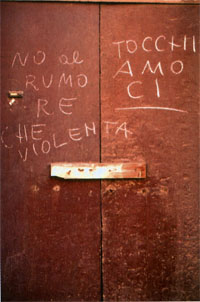 NO al
RUMO
RE
CHE
VIOLENTA
TOCCHI
AMO
CI